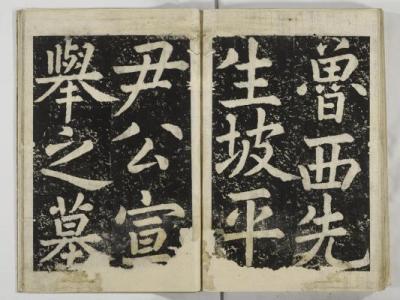 魯西先
生坡平
尹公宣
擧之墓